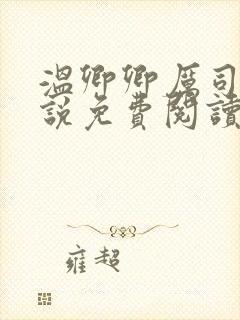 溫卿卿厲司
說免費閱讀
雍超